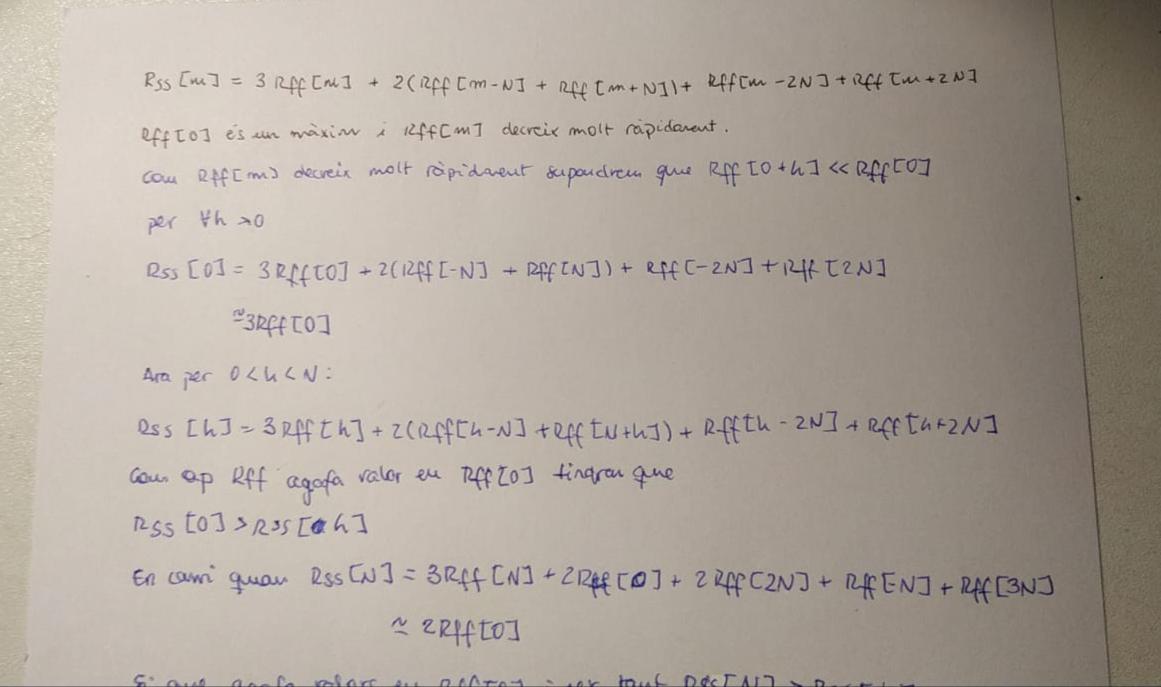 Rss [m] = 3 Rff [m] + 2(Rff [m-N] + Rff [m+N])+ Rff[m -2N] + Rff [m+2N]
Rff[0] és un màxim i Rff[m] decreix molt ràpidament.
Com Rff[m] decreix molt ràpidament supondrem que Rff [0+h] << Rff[0]
per ∀h >0
Rss [0] = 3Rff[0] + 2(Rff[-N] + Rff[N]) + Rff[-2N] + Rff [2N]
≃3Rff[0]
Ara per 0<h<N:
Rss [h] = 3 Rff [h] + 2(Rff[h-N] + Rff [N+h]) + Rff[h - 2N] + Rff [h+2N]
Com cap Rff agafa valor en Rff[0] tindrem que
Rss [0] > Rss[h]
En canvi quan Rss [N] = 3Rff [N] + 2Rff [0] + 2 Rff [2N] + Rff [N] + Rff [3N]
≃ 2Rff[0]
Si que agafa valors en Rff[0] i per tant Rss[N] >